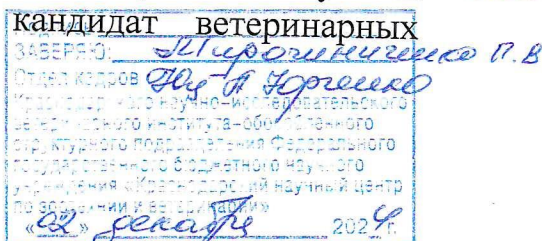 кандидат ветеринарных
ЗАВЕРЯЮ: Мирошниченко П.В
Отдел кадров Юрченко
Краснодарского научно-исследовательского
ветеринарного института-обособленного
структурного подразделения Федерального
государственного бюджетного научного
учреждения «Краснодарский научный центр
по зоотехнии и ветеринарии»
«02» декабря 2024г.